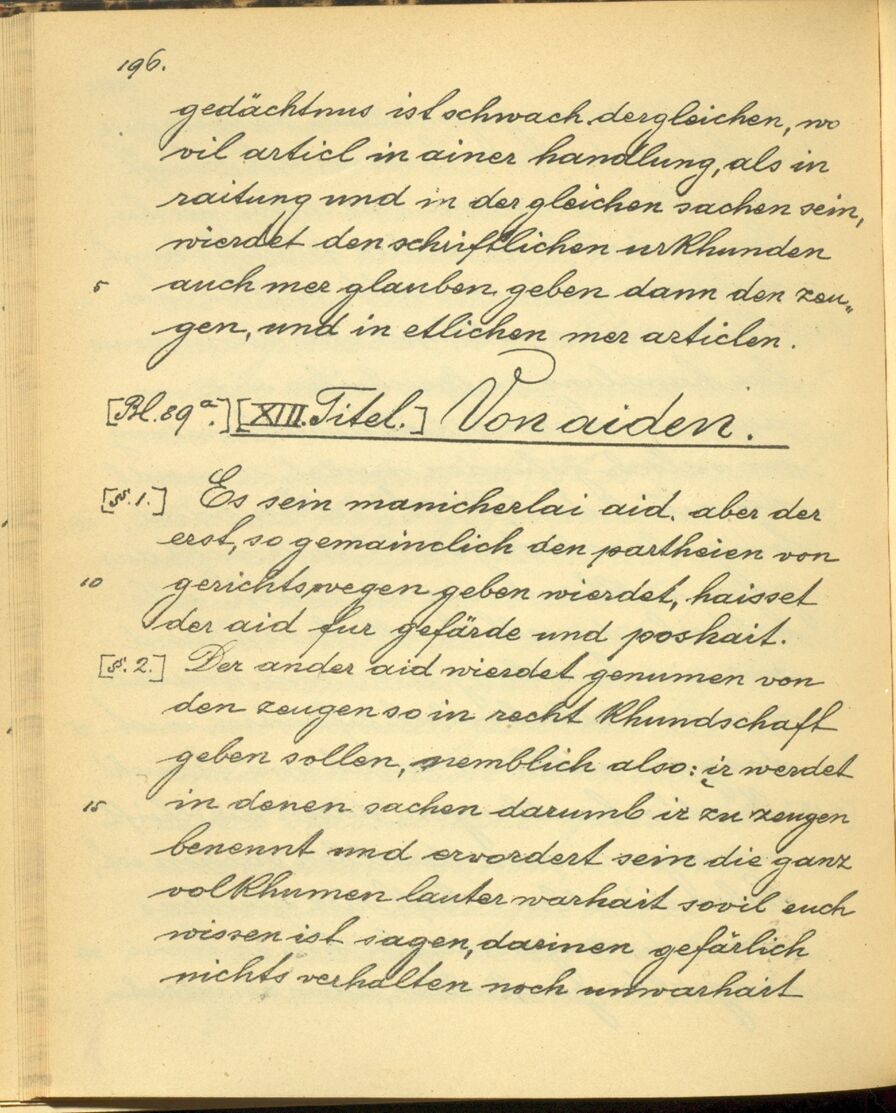 196.
gedächtnus ist schwach. dergleichen, wo
vil articl in ainer handlung, als in
raitung und in dergleichen sachen sein,
wierdet den schriftlichen urkhunden
5 auch mer glauben geben dann den zeu„
gen, und in etlichen mer articlen.
[Bl. 89a.] [XIII. Titel.] Von aiden.
[§. 1.] Es sein manicherlai aid. aber der
erst, so gemaincklich den partheien von
10 gerichtswegen geben wierdet, haisset
der aid fur gefärde und poshait.
[§. 2.] Der ander aid wierdet genumen von
den zeugen so in recht khundschaft
geben sollen, nemblich also: ir werdet
15 in denen sachen darumb ir zu zeugen
benennt und ervordert sein die ganz
volkhumen lauter warhait sovil euch
wissen ist sagen, darinen gefärlich
nichts verhalten noch unwarhait